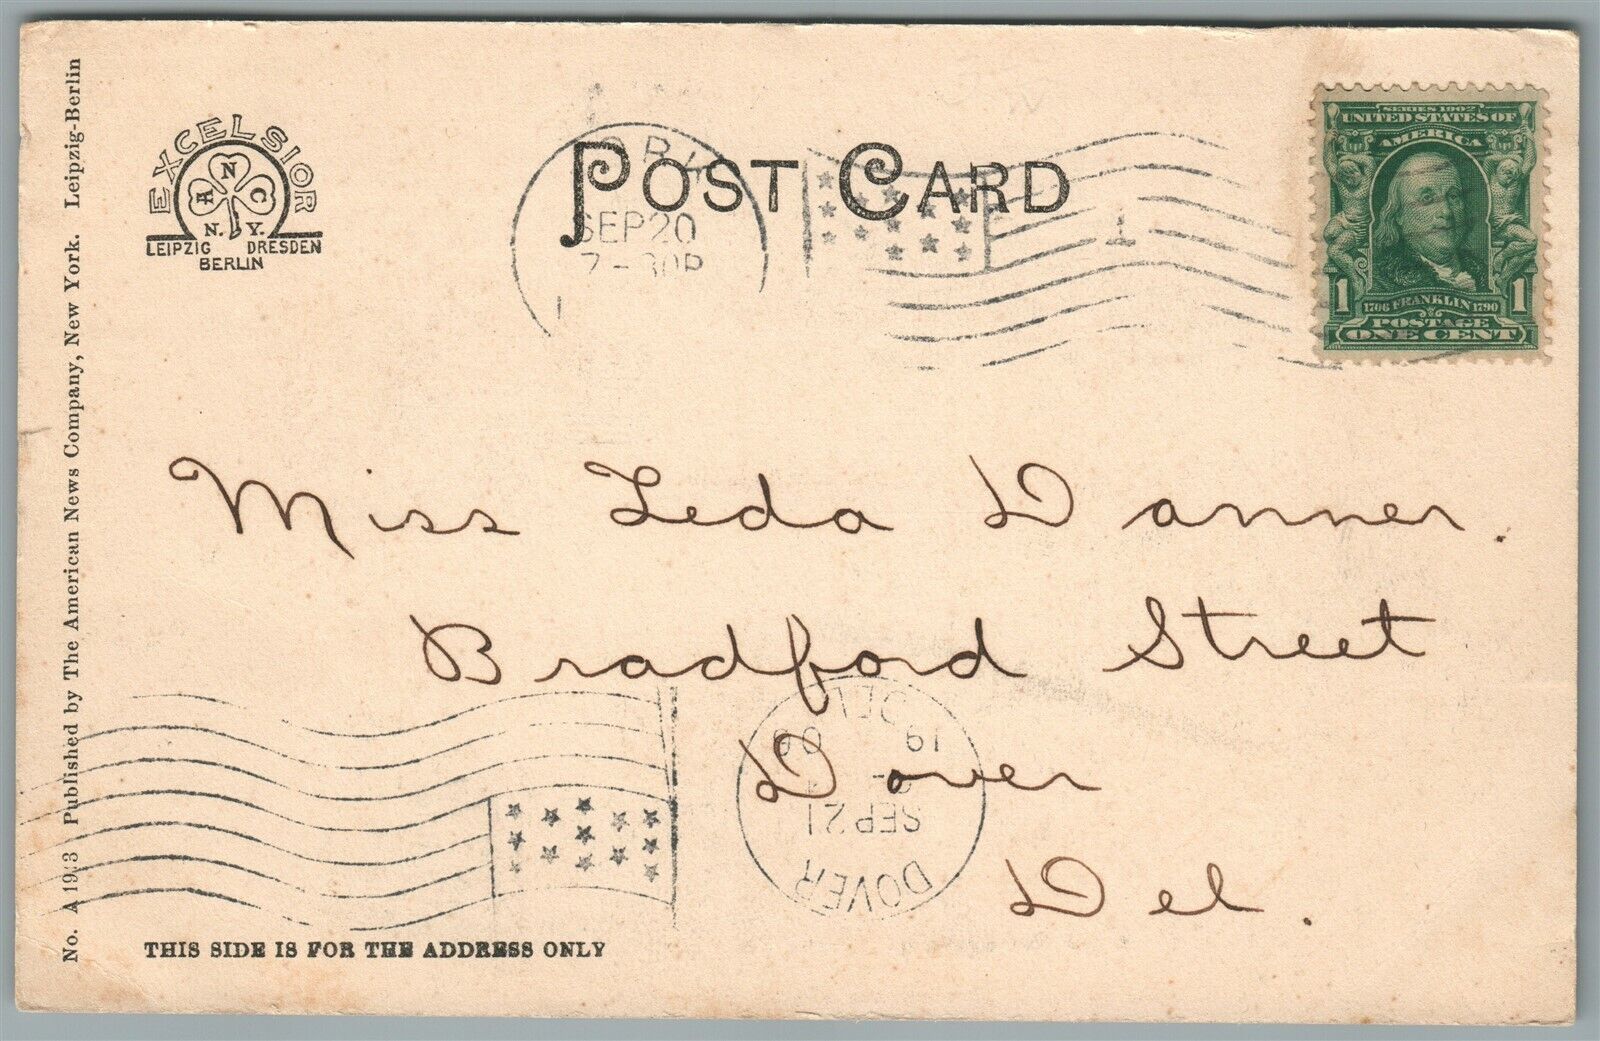 No. A 1913 Published by The American News Company, New York. Leipzig-Berlin
EXCELSIOR
A N C
N. Y.
LEIPZIG DRESDEN
BERLIN
POST CARD
SEP 20
7-30P
1
SERIES 1902
UNITED STATES OF
AMERICA
1 1706 FRANKLIN 1790 1
POSTAGE
ONE CENT
Miss Leda Danner.
Bradford Street
Dover
Del.
DOVER
SEP 21
19 06
DEL
THIS SIDE IS FOR THE ADDRESS ONLY